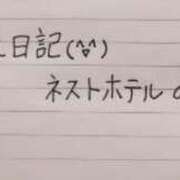 日記(^^)
ネストホテル